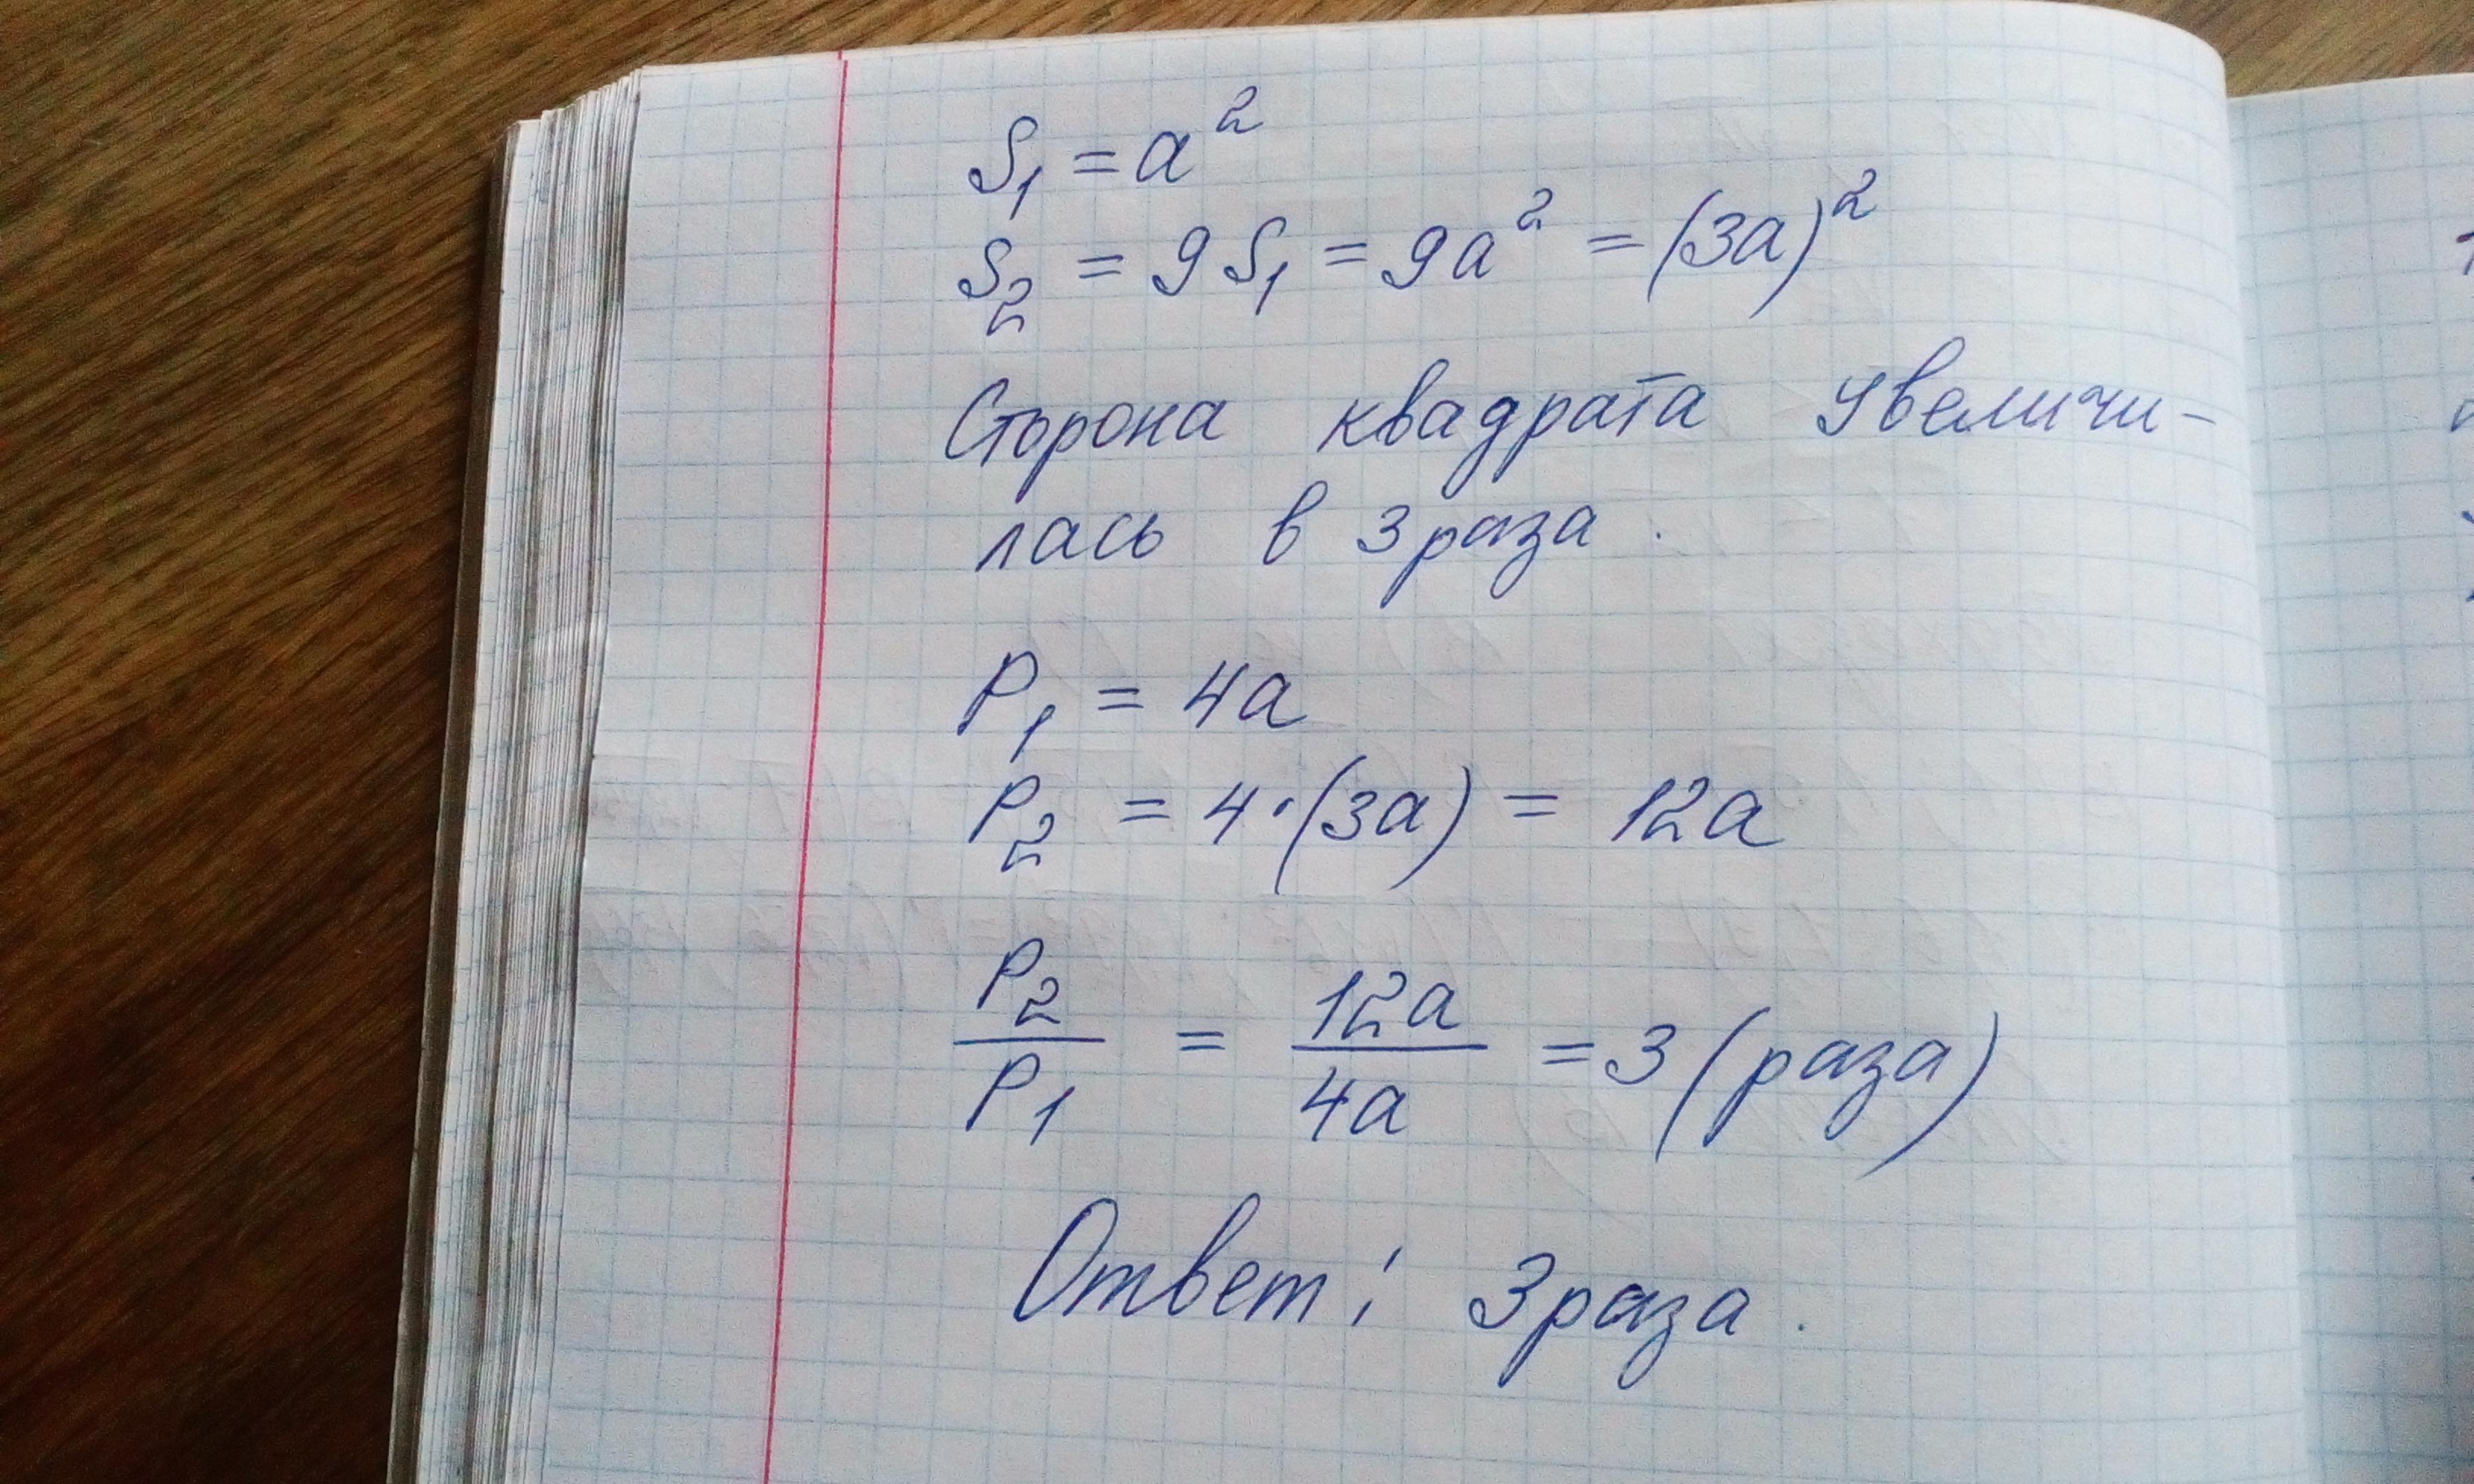 S₁ = a²
S₂ = 9S₁ = 9a² = (3a)²
Сторона квадрата увеличи-
лась в 3 раза.
P₁ = 4a
P₂ = 4·(3a) = 12a
P₂/P₁ = 12a/4a = 3 (раза)
Ответ: 3 раза.